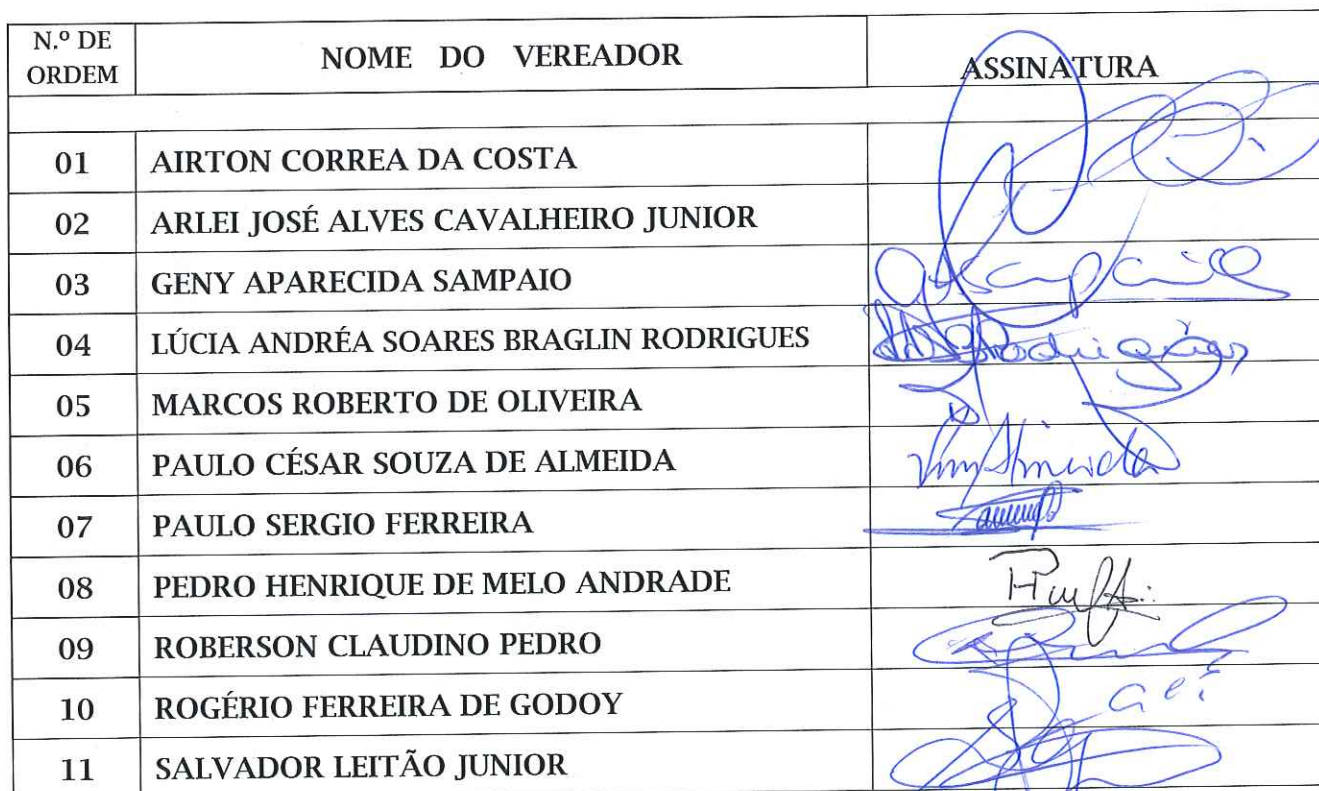 N.º DE ORDEM NOME DO VEREADOR ASSINATURA
01 AIRTON CORREA DA COSTA
02 ARLEI JOSÉ ALVES CAVALHEIRO JUNIOR
03 GENY APARECIDA SAMPAIO
04 LÚCIA ANDRÉA SOARES BRAGLIN RODRIGUES Rodrigues
05 MARCOS ROBERTO DE OLIVEIRA
06 PAULO CÉSAR SOUZA DE ALMEIDA Almeida
07 PAULO SERGIO FERREIRA
08 PEDRO HENRIQUE DE MELO ANDRADE
09 ROBERSON CLAUDINO PEDRO
10 ROGÉRIO FERREIRA DE GODOY
11 SALVADOR LEITÃO JUNIOR